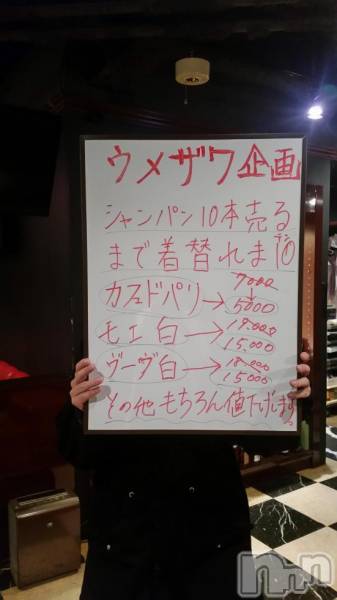 ウメザワ企画
シャンパン10本売る
まで着替れま10
テン
カフェドパリ→
7000
5000
モエ白→
19.000
15.000
ヴーヴ白→
18.000
15000
その他もちろん値下げします。
nnn